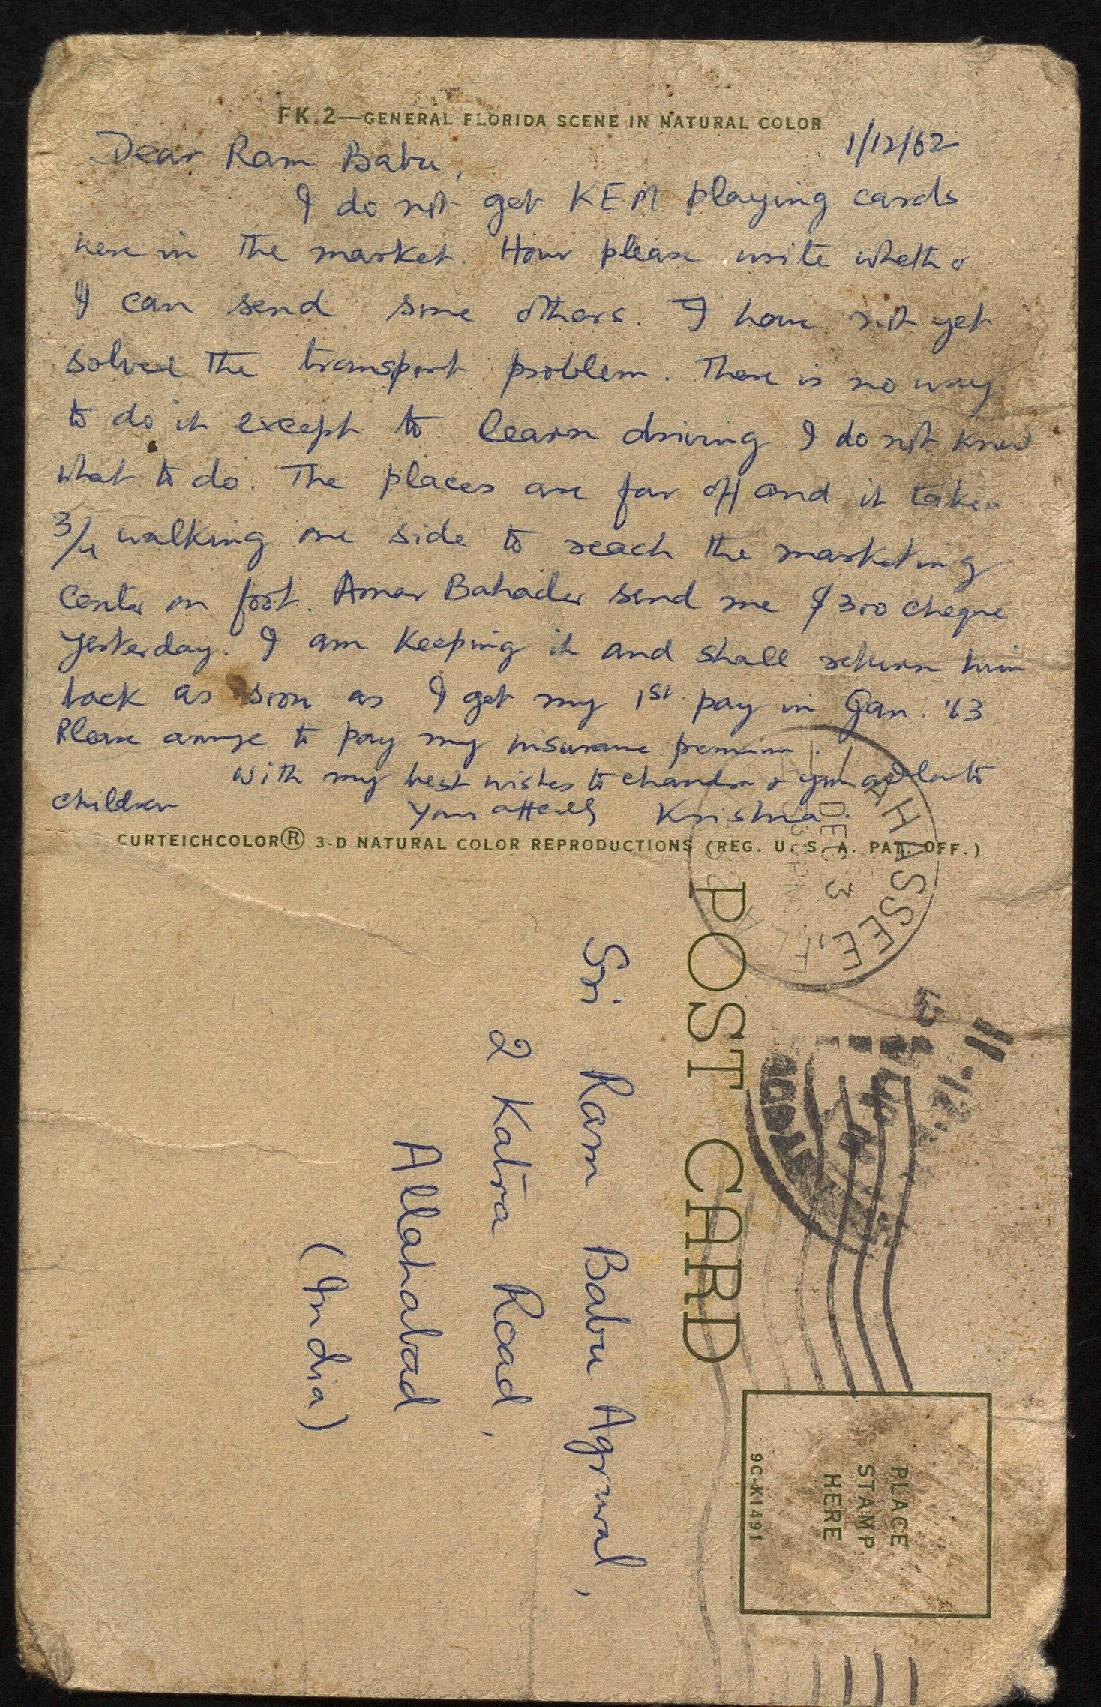 FK.2—GENERAL FLORIDA SCENE IN NATURAL COLOR
1/12/62
Dear Ram Babu,
I do not get KEM playing cards
here in the market. How please write whether
I can send some others. I have not yet
solved the transport problem. There is no way
to do it except to learn driving. I do not know
what to do. The places are far off and it takes
3/4 walking one side to reach the marketing
center on foot. Amar Bahader send me $300 cheque
yesterday. I am keeping it and shall return him
back as soon as I get my 1st pay in Jan. '63
Please arrange to pay my insurance premium.
with my best wishes to chandra & you to
children
Your Krishna.
CURTEICHCOLOR® 3-D NATURAL COLOR REPRODUCTIONS (REG. U. S. A. PAT. OFF.)
POST CARD
AHASSEE, FL
DEC 3
Sri Ram Babu Agrwal,
2 Katra Road,
Allahabad
(India)
PLACE
STAMP
HERE
9C-K1491